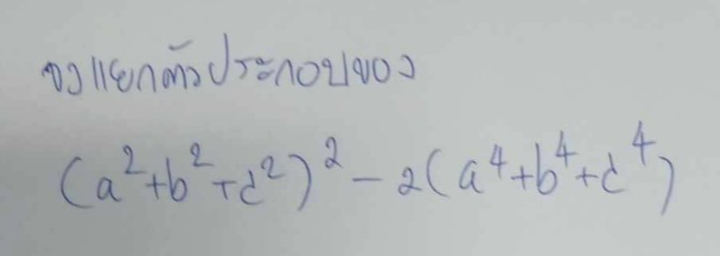 จงแยกตัวประกอบของ
(a²+b²+c²)²-2(a⁴+b⁴+c⁴)